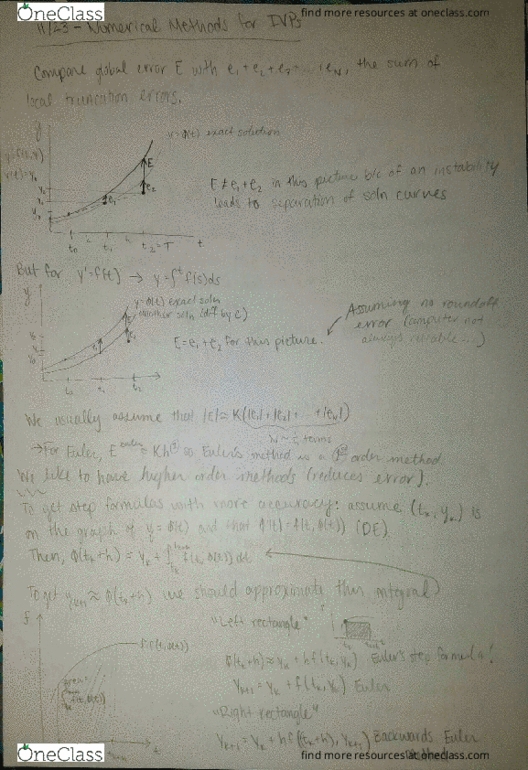 OneClass
find more resources at oneclass.com
11/23 - Numerical Methods for IVPs
Compare global error E with e₁ + e₂ + e₃ + ... + e_N, the sum of
local truncation errors.
y
y = φ(t) exact solution
E
e₁
e₂
t₀
t₁
t₂ = T
t
E ≠ e₁ + e₂ in this picture b/c of an instability
leads to separation of soln curves
But for y' = f(t) → y = ∫ᵗ f(s)ds
y
y = φ(t) exact soln
another soln (diff by C)
E = e₁ + e₂ for this picture.
Assuming no roundoff
error (computer not
always reliable...)
We usually assume that |E| ≈ K(|e₁| + |e₂| + ... + |e_N|)
terms
→ For Euler, Euler's method is a 1st order method.
We like to have higher order methods (reduces error).
To get step formulas with more accuracy: assume (tₖ, yₖ) is
on the graph of y = φ(t) and that φ'(t) = f(t, φ(t)) (DE)
Then, φ(tₖ+h) = yₖ + ∫ f(t, φ(t)) dt
To get yₖ₊₁ ≈ φ(tₖ+h) we should approximate this integral
f
f(t, φ(t))
t
"Left rectangle"
φ(tₖ+h) ≈ yₖ + hf(tₖ, yₖ) Euler's step formula!
yₖ₊₁ = yₖ + f(tₖ, yₖ) Euler
"Right rectangle"
yₖ₊₁ = yₖ + hf((tₖ+h), yₖ₊₁) Backwards Euler
OneClass
find more resources at oneclass.com